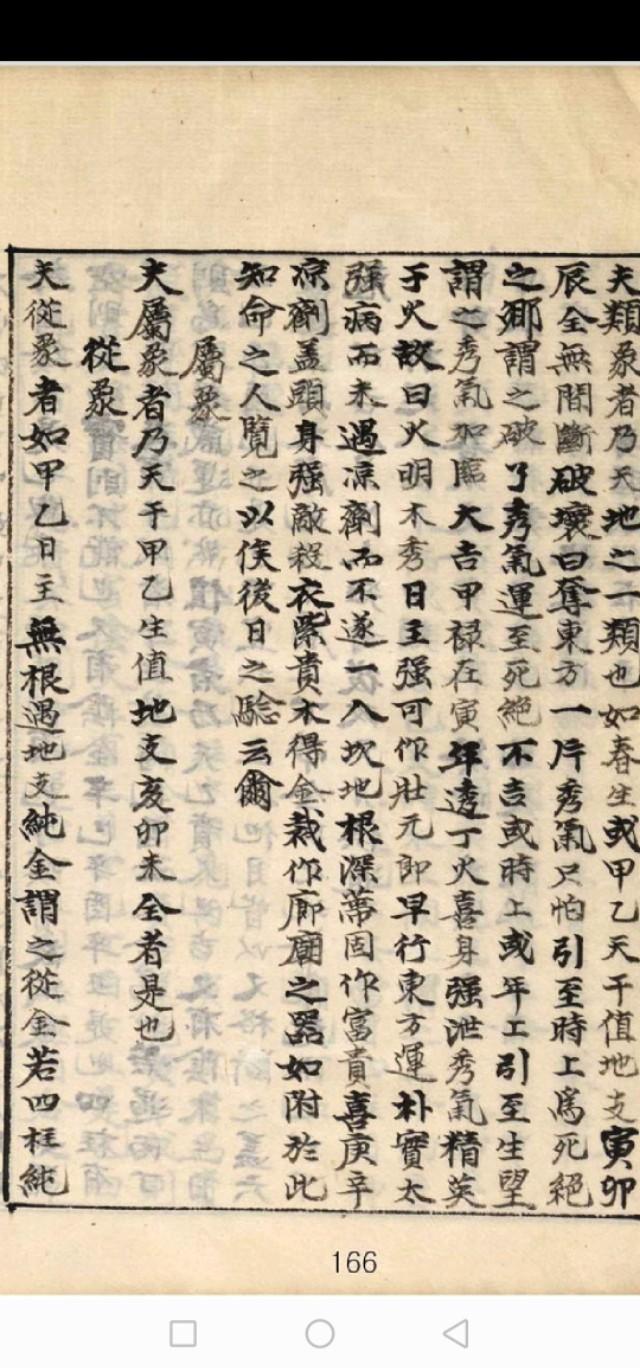 夫類象者乃天地之一類也如春生或甲乙天干值地支寅卯
辰全無間斷破壞曰奪東方一片秀氣只怕引至時上爲死絕
之鄉謂之破了秀氣運至死絕不吉或時上或年上引至生望
謂之秀氣加臨大吉甲祿在寅年透丁火喜身强泄秀氣精英
于火故曰火明木秀日主强可作壯元郎早行東方運朴實太
强病而未遇凉劑而不遂一入坎地根深蒂固作富貴喜庚辛
凉劑盖頭身强敵殺衣紫貴木得金裁作廊廟之器如附於此
知命之人覽之以俟後日之驗云爾
屬象
夫屬象者乃天干甲乙生值地支亥卯未全者是也
從象
夫從象者如甲乙日主無根遇地支純金謂之從金若四柱純
166